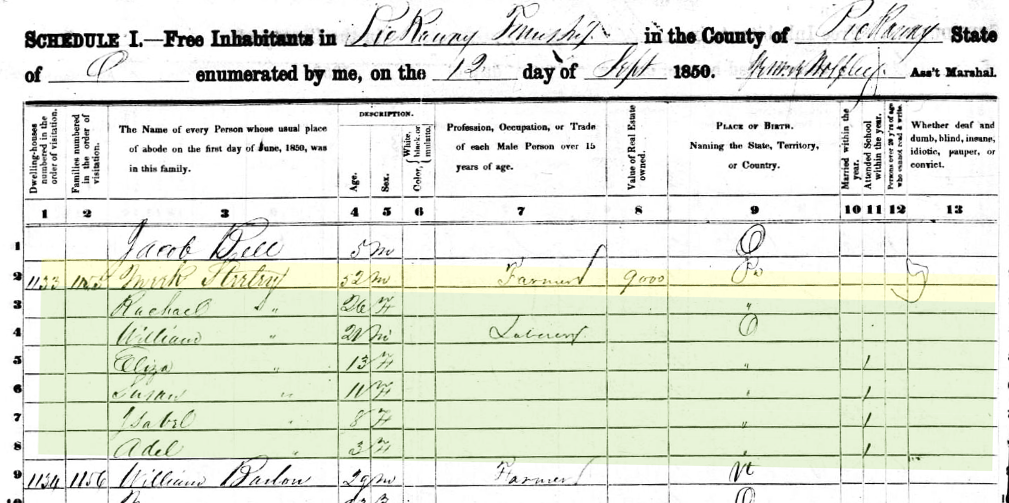 SCHEDULE I.—Free Inhabitants in Pickaway Township in the County of Pickaway State
of O enumerated by me, on the 12 day of Sept 1850. Ass't Marshal.
Dwelling-houses numbered in the order of visitation.
Families numbered in the order of visitation.
The Name of every Person whose usual place of abode on the first day of June, 1850, was in this family.
DESCRIPTION.
Age.
Sex.
Color, White, black, or mulatto.
Profession, Occupation, or Trade of each Male Person over 15 years of age.
Value of Real Estate owned.
PLACE OF BIRTH. Naming the State, Territory, or Country.
Married within the year.
Attended School within the year.
Persons over 20 y'rs of age who cannot read & write.
Whether deaf and dumb, blind, insane, idiotic, pauper, or convict.
1 2 3 4 5 6 7 8 9 10 11 12 13
1 Jacob Bell 5 m O
2 1133 1155 52 m Farmer 9000
3 Rachael " 26 F "
4 William " m O
5 Eliza " 13 F " 1
6 Susan " 11 F " 1
7 Isabel " 8 F " 1
8 Adel " 3 F " 1
9 1134 1156 William Barlow 29 m Farmer Vt
10